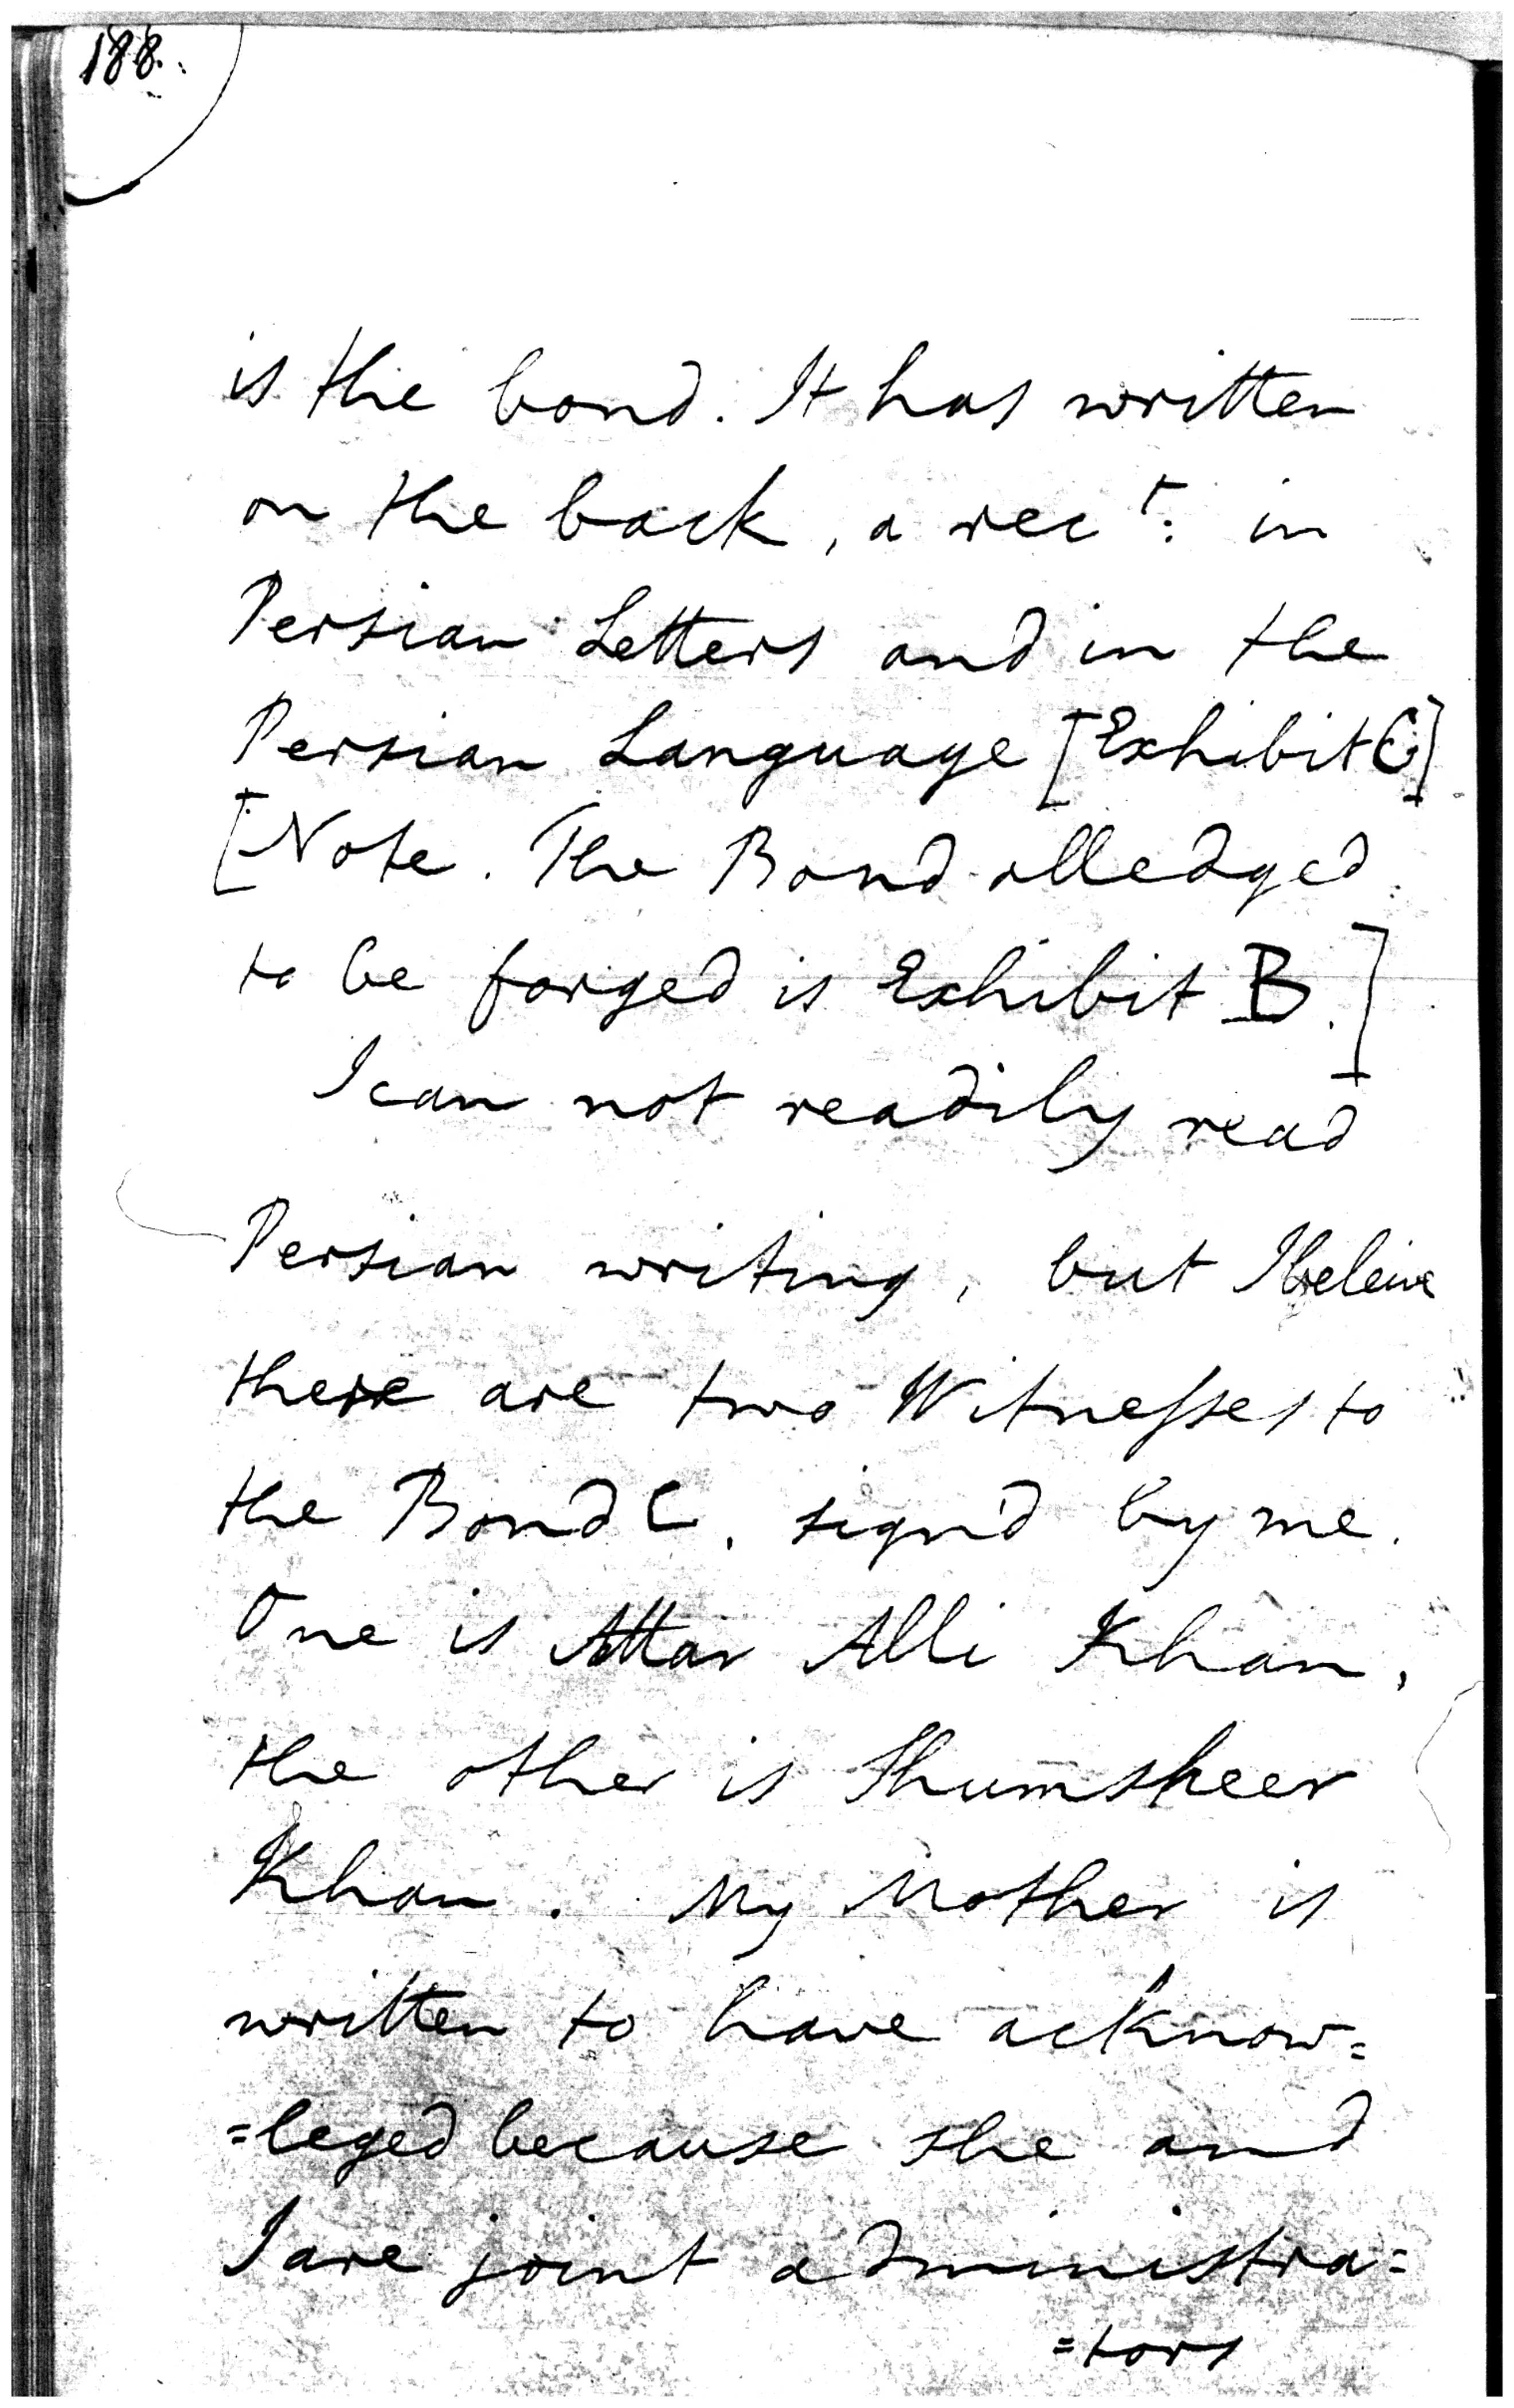 188.
is the bond. It has written
on the back, a rec^t: in
Persian Letters and in the
Persian Language [Exhibit C]
[Note. The Bond alledged
to be forged is Exhibit B.]
I can not readily read
Persian writing, but I beleive
there are two Witnesses to
the Bond C. sign'd by me.
One is Attar Alli Khan,
the other is Shumsheer
Khan. My Mother is
written to have acknow=
=leged because she and
I are joint administra=
=tors